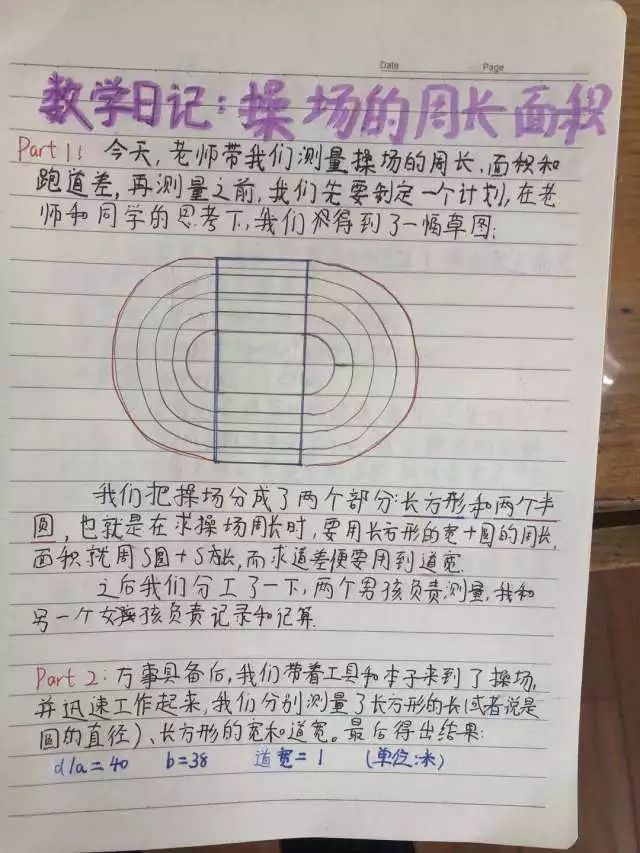 Date Page
数学日记:操场的周长面积
Part 1: 今天,老师带我们测量操场的周长、面积和
跑道差,再测量之前,我们先要制定一个计划,在老
师和同学的思考下,我们得到了一幅草图:
我们把操场分成了两个部分:长方形和两个半
圆,也就是在求操场周长时,要用长方形的宽+圆的周长,
面积就周S圆+S方长,而求道差便要用到道宽.
之后我们分工了一下,两个男孩负责测量,我和
另一个女孩负责记录和记算.
Part 2: 万事具备后,我们带着工具和本子来到了操场,
并迅速工作起来,我们分别测量了长方形的长(或者说是
圆的直径)、长方形的宽和道宽。最后得出结果:
d/a=40 b=38 道宽=1 (单位:米)